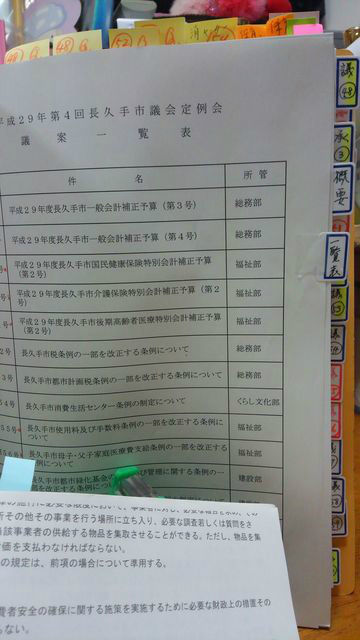 平成29年第4回長久手市議会定例会
議案一覧表
件名 所管
平成29年度長久手市一般会計補正予算(第3号) 総務部
平成29年度長久手市一般会計補正予算(第4号) 総務部
平成29年度長久手市国民健康保険特別会計補正予算
(第2号) 福祉部
平成29年度長久手市介護保険特別会計補正予算(第2
号) 福祉部
平成29年度長久手市後期高齢者医療特別会計補正予算
(第2号) 福祉部
2号 長久手市税条例の一部を改正する条例について 総務部
3号 長久手市都市計画税条例の一部を改正する条例について 総務部
54号 長久手市消費生活センター条例の制定について くらし文化部
55号 長久手市使用料及び手数料条例の一部を改正する条例に
ついて 福祉部
56号 長久手市母子・父子家庭医療費支給条例の一部を改正す
る条例について 福祉部
長久手市都市緑化基金の 及び管理に関する条例の一
部を改正する条例について 建設部
所その他その事業を行う場所に立ち入り、必要な調査若しくは質問をさ
当該事業者の供給する物品を集取させることができる。ただし、物品を集
価を支払わなければならない。
の規定は、前項の場合について準用する。
費者安全の確保に関する施策を実施するために必要な財政上の措置その
らない。
議
48
承
3
概要
一覧表
議
53